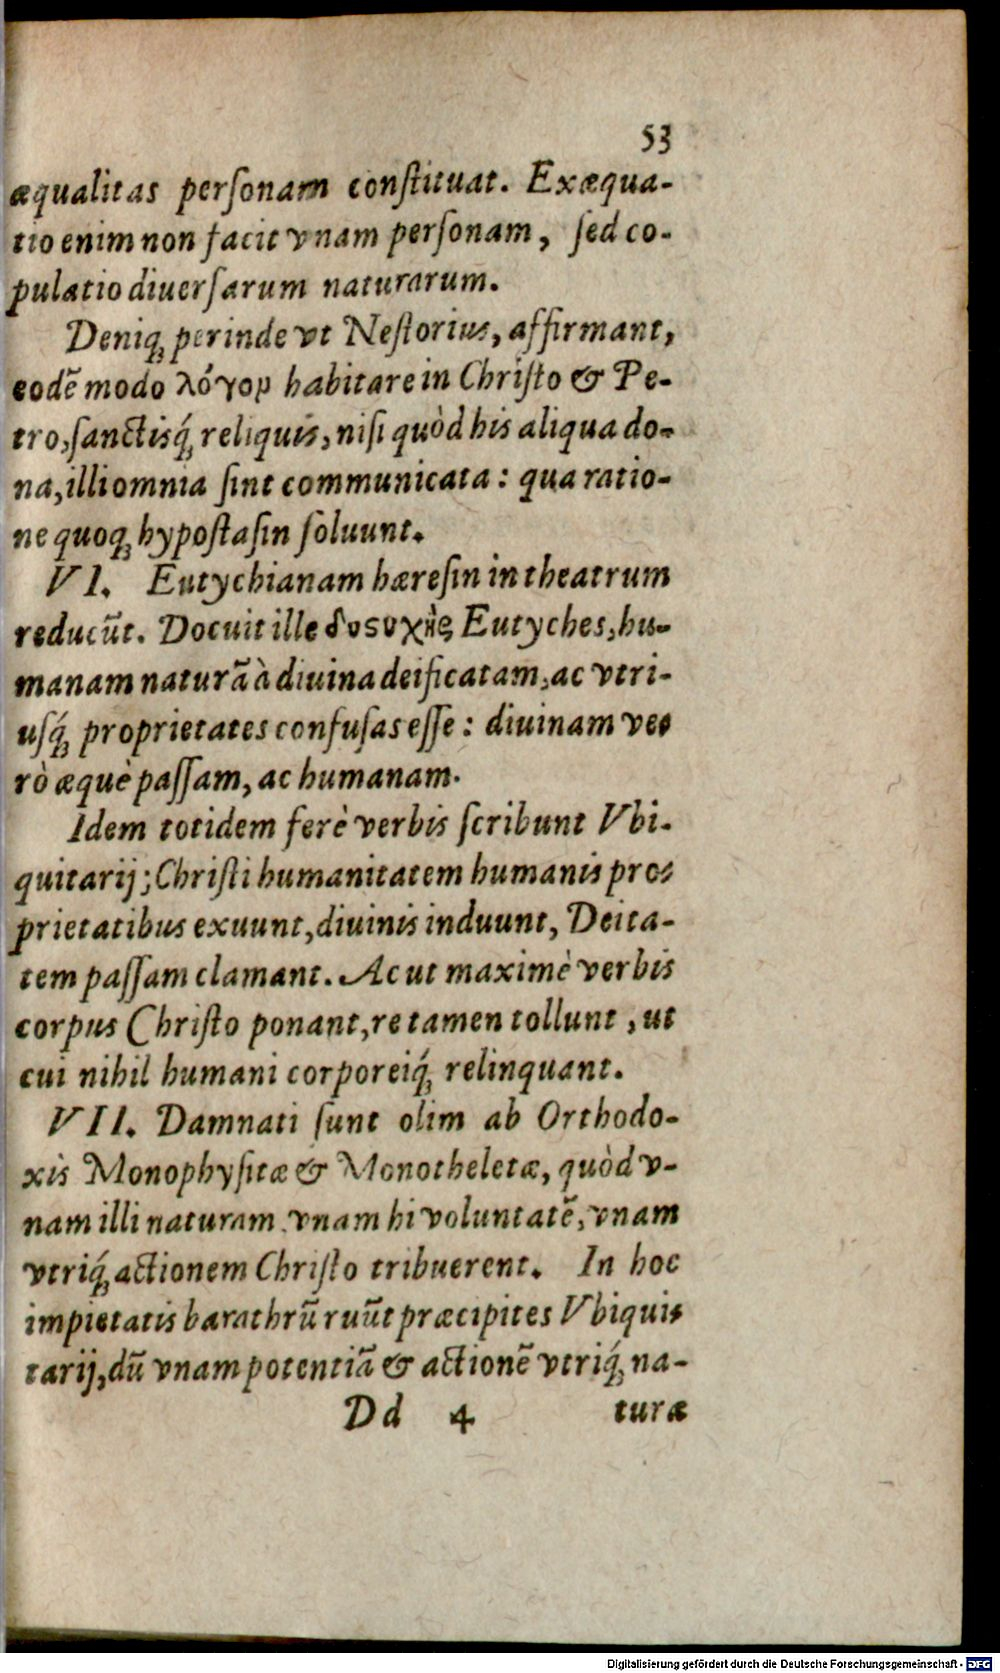 53
æqualitas perſonam conſtituat. Exæqua-
tio enim non facit vnam perſonam, ſed co-
pulatio diuerſarum naturarum.
Deniq́ꝫ perinde vt Neſtorius, affirmant,
eodē modo λόγον habitare in Chriſto & Pe-
tro, ſanctisq́ꝫ reliquis, niſi quòd his aliqua do-
na, illi omnia ſint communicata: qua ratio-
ne quoqꝫ hypoſtaſin ſoluunt.
VI. Eutychianam hæreſin in theatrum
reducūt. Docuit ille δυςυχὴς Eutyches, hu-
manam naturā à diuina deificatam, ac vtri-
uſq́ꝫ proprietates confuſas eſſe: diuinam ve-
rò æquè paſſam, ac humanam.
Idem totidem ferè verbis ſcribunt Vbi-
quitarij; Chriſti humanitatem humanis pro-
prietatibus exuunt, diuinis induunt, Deita-
tem paſſam clamant. Ac ut maximè verbis
corpus Chriſto ponant, re tamen tollunt, ut
cui nihil humani corporeiq́ꝫ relinquant.
VII. Damnati ſunt olim ab Orthodo-
xis Monophyſitæ & Monotheletæ, quòd v-
nam illi naturam, vnam hi voluntatē, vnam
vtriq́ꝫ actionem Chriſto tribuerent. In hoc
impietatis barathrū ruūt præcipites Vbiqui-
tarij, dū vnam potentiā & actionē vtriq́ꝫ na-
Dd 4 turæ
Digitalisierung gefördert durch die Deutsche Forschungsgemeinschaft - DFG